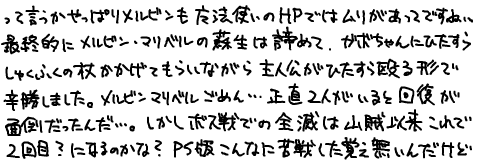 って言うかやっぱりメルビンも魔法使いのHPではムリがあってですねぃ。
最終的にメルビン・マリベルの蘇生は諦めて、ガボちゃんにひたすら
しゅくふくの杖かかげてもらいながら主人公がひたすら殴る形で
辛勝しました。メルビンマリベルごめん…正直2人がいると回復が
面倒だったんだ…。しかしボス戦での全滅は山賊以来これで
2回目?になるのかな?PS版こんなに苦戦した覚え無いんだけど